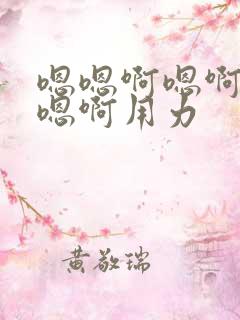 嗯嗯啊嗯啊
嗯啊用力
黄敬瑞